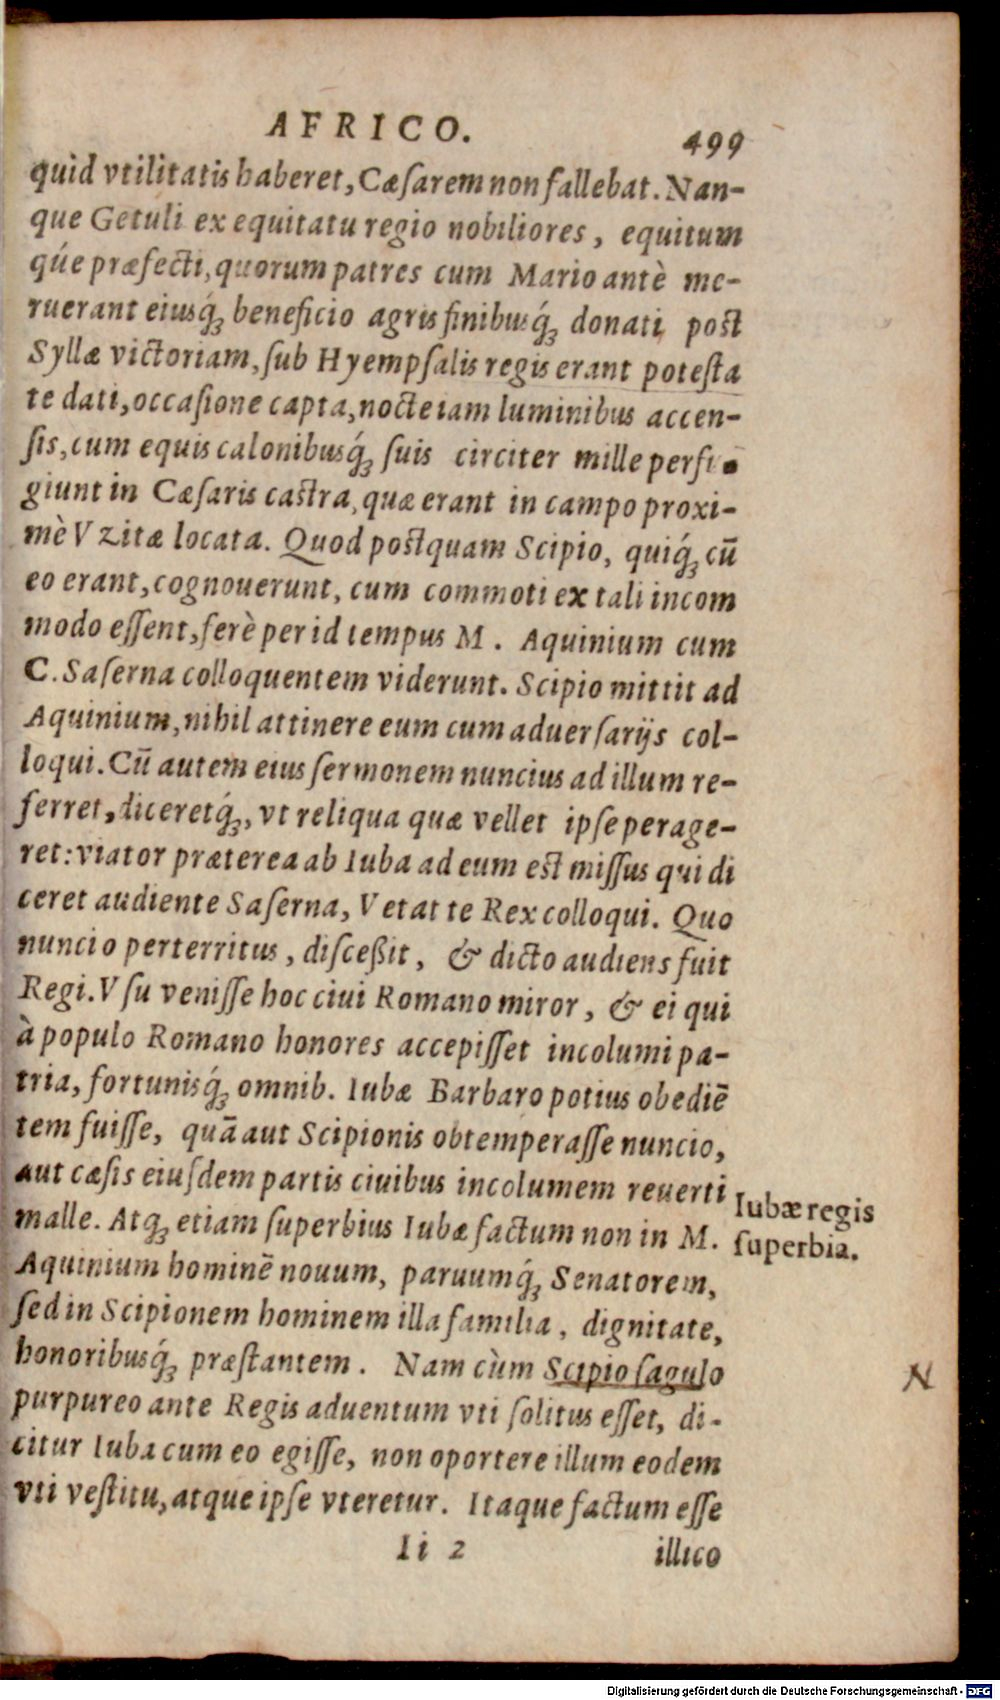 AFRICO. 499
quid vtilitatis haberet, Cæſarem non fallebat. Nan-
que Getuli ex equitatu regio nobiliores, equitum
q́ue præfecti, quorum patres cum Mario antè me-
ruerant eiusq́ꝫ beneficio agris finibusq́ꝫ donati post
Syllæ victoriam, ſub Hyempſalis regis erant poteſta
te dati, occaſione capta, nocte iam luminibus accen-
ſis, cum equis calonibusq́ꝫ ſuis circiter mille perfu
giunt in Cæſaris castra, quæ erant in campo proxi-
mè Vzitæ locata. Quod postquam Scipio, quiq́ꝫ cū
eo erant, cognouerunt, cum commoti ex tali incom
modo eſſent, ferè per id tempus M. Aquinium cum
C. Saſerna colloquentem viderunt. Scipio mittit ad
Aquinium, nihil attinere eum cum aduerſarijs col-
loqui. Cū autem eius ſermonem nuncius ad illum re-
ferret, diceretq́ꝫ, vt reliqua quæ vellet ipſe perage-
ret: viator præterea ab Iuba ad eum est miſſus qui di
ceret audiente Saſerna, Vetat te Rex colloqui. Quo
nuncio perterritus, diſceßit, & dicto audiens fuit
Regi. Vſu veniſſe hoc ciui Romano miror, & ei qui
à populo Romano honores accepiſſet incolumi pa-
tria, fortunisq́ꝫ omnib. Iubæ Barbaro potius obediē
tem fuiſſe, quā aut Scipionis obtemperaſſe nuncio,
aut cæſis eiuſdem partis ciuibus incolumem reuerti
malle. Atqꝫ etiam ſuperbius Iubæ factum non in M.
Iubæ regis
ſuperbia.
Aquinium hominē nouum, paruumq́ꝫ Senatorem,
ſed in Scipionem hominem illa familia, dignitate,
honoribusq́ꝫ præſtantem. Nam cùm Scipio ſagulo
N
purpureo ante Regis aduentum vti ſolitus eſſet, di-
citur Iuba cum eo egiſſe, non oportere illum eodem
vti veſtitu, atque ipſe vteretur. Itaque factum eſſe
Ii 2 illico
Digitalisierung gefördert durch die Deutsche Forschungsgemeinschaft - DFG